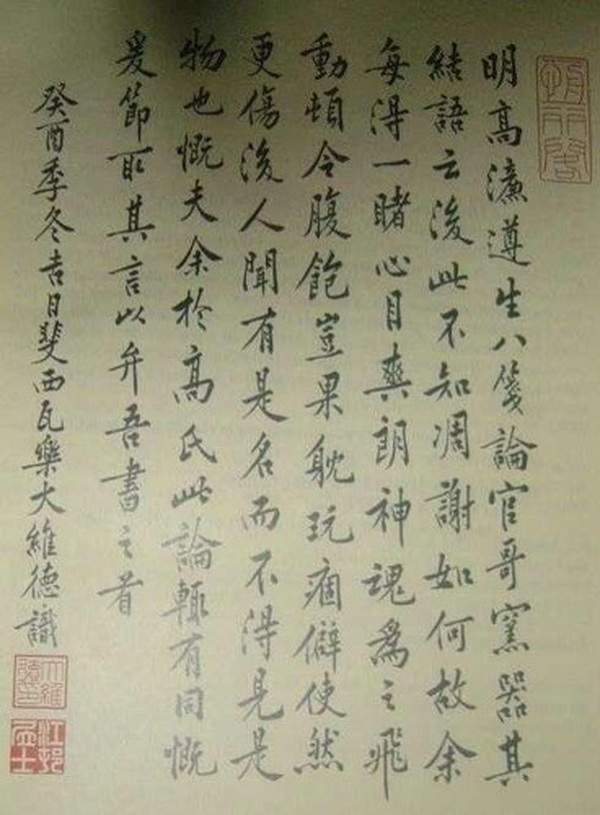 明高濂遵生八箋論官哥窯器其
結語云後此不知凋謝如何故余
每得一睹心目爽朗神魂爲之飛
動頓令腹飽豈果耽玩痼僻使然
更傷後人聞有是名而不得見是
物也慨夫余於高氏此論輒有同慨
爰節取其言以弁吾書之首
癸酉季冬吉日斐西瓦樂大維德識
大維德印